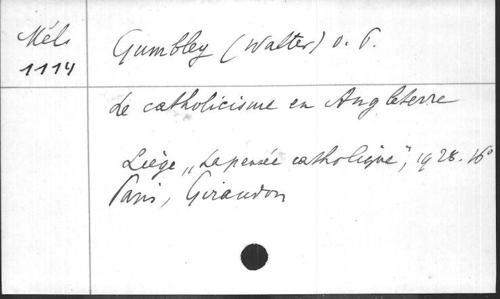 Mél.
1114
Gumbley (Walter) O. P.
Le catholicisme en Angleterre
Liège, „La pensée catholique", 1928. 16°
Paris, Giraudon